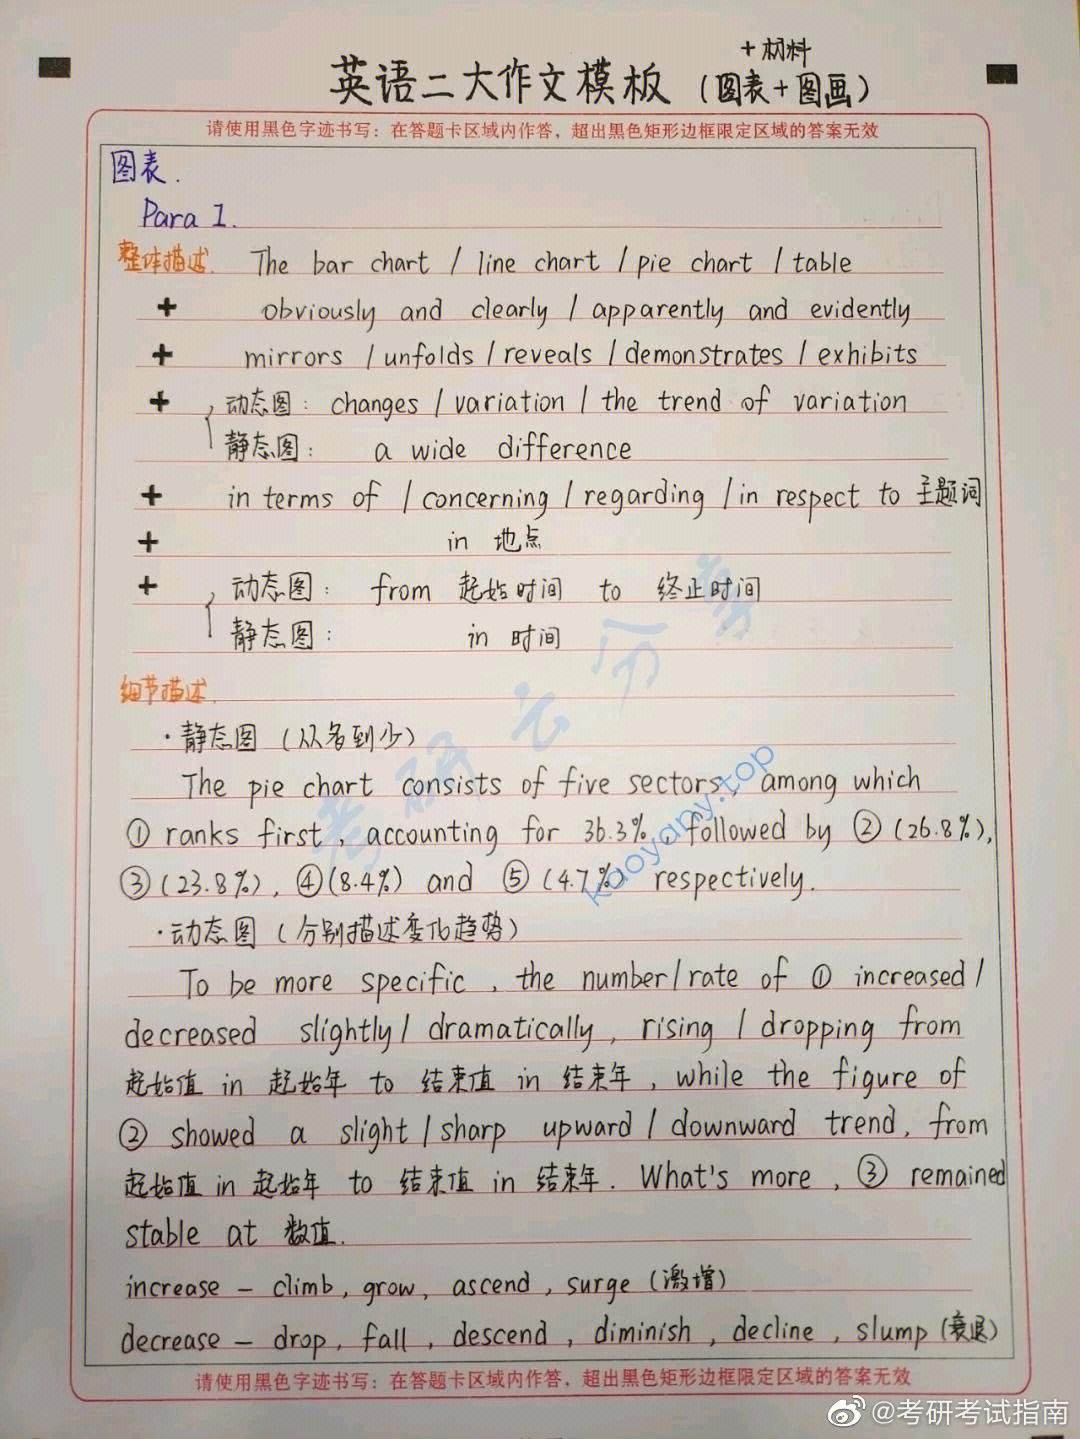 +材料
英语二大作文模板 (图表+图画)
请使用黑色字迹书写：在答题卡区域内作答，超出黑色矩形边框限定区域的答案无效
图表.
Para 1.
整体描述. The bar chart / line chart / pie chart / table
+ obviously and clearly / apparently and evidently
+ mirrors / unfolds / reveals / demonstrates / exhibits
+ 动态图: changes / variation / the trend of variation
静态图: a wide difference
+ in terms of / concerning / regarding / in respect to 主题词
+ in 地点
+ 动态图: from 起始时间 to 终止时间
静态图: in 时间
细节描述.
·静态图 (从多到少)
The pie chart consists of five sectors, among which
① ranks first, accounting for 36.3%, followed by ② (26.8%),
③ (23.8%), ④ (8.4%) and ⑤ (4.7%) respectively.
·动态图 (分别描述变化趋势)
To be more specific, the number/rate of ① increased/
decreased slightly/ dramatically, rising / dropping from
起始值 in 起始年 to 结束值 in 结束年, while the figure of
② showed a slight / sharp upward / downward trend, from
起始值 in 起始年 to 结束值 in 结束年. What's more, ③ remained
stable at 数值.
increase - climb, grow, ascend, surge (激增)
decrease - drop, fall, descend, diminish, decline, slump (衰退)
请使用黑色字迹书写：在答题卡区域内作答，超出黑色矩形边框限定区域的答案无效
考研云分享
kaoyany.top
@考研考试指南